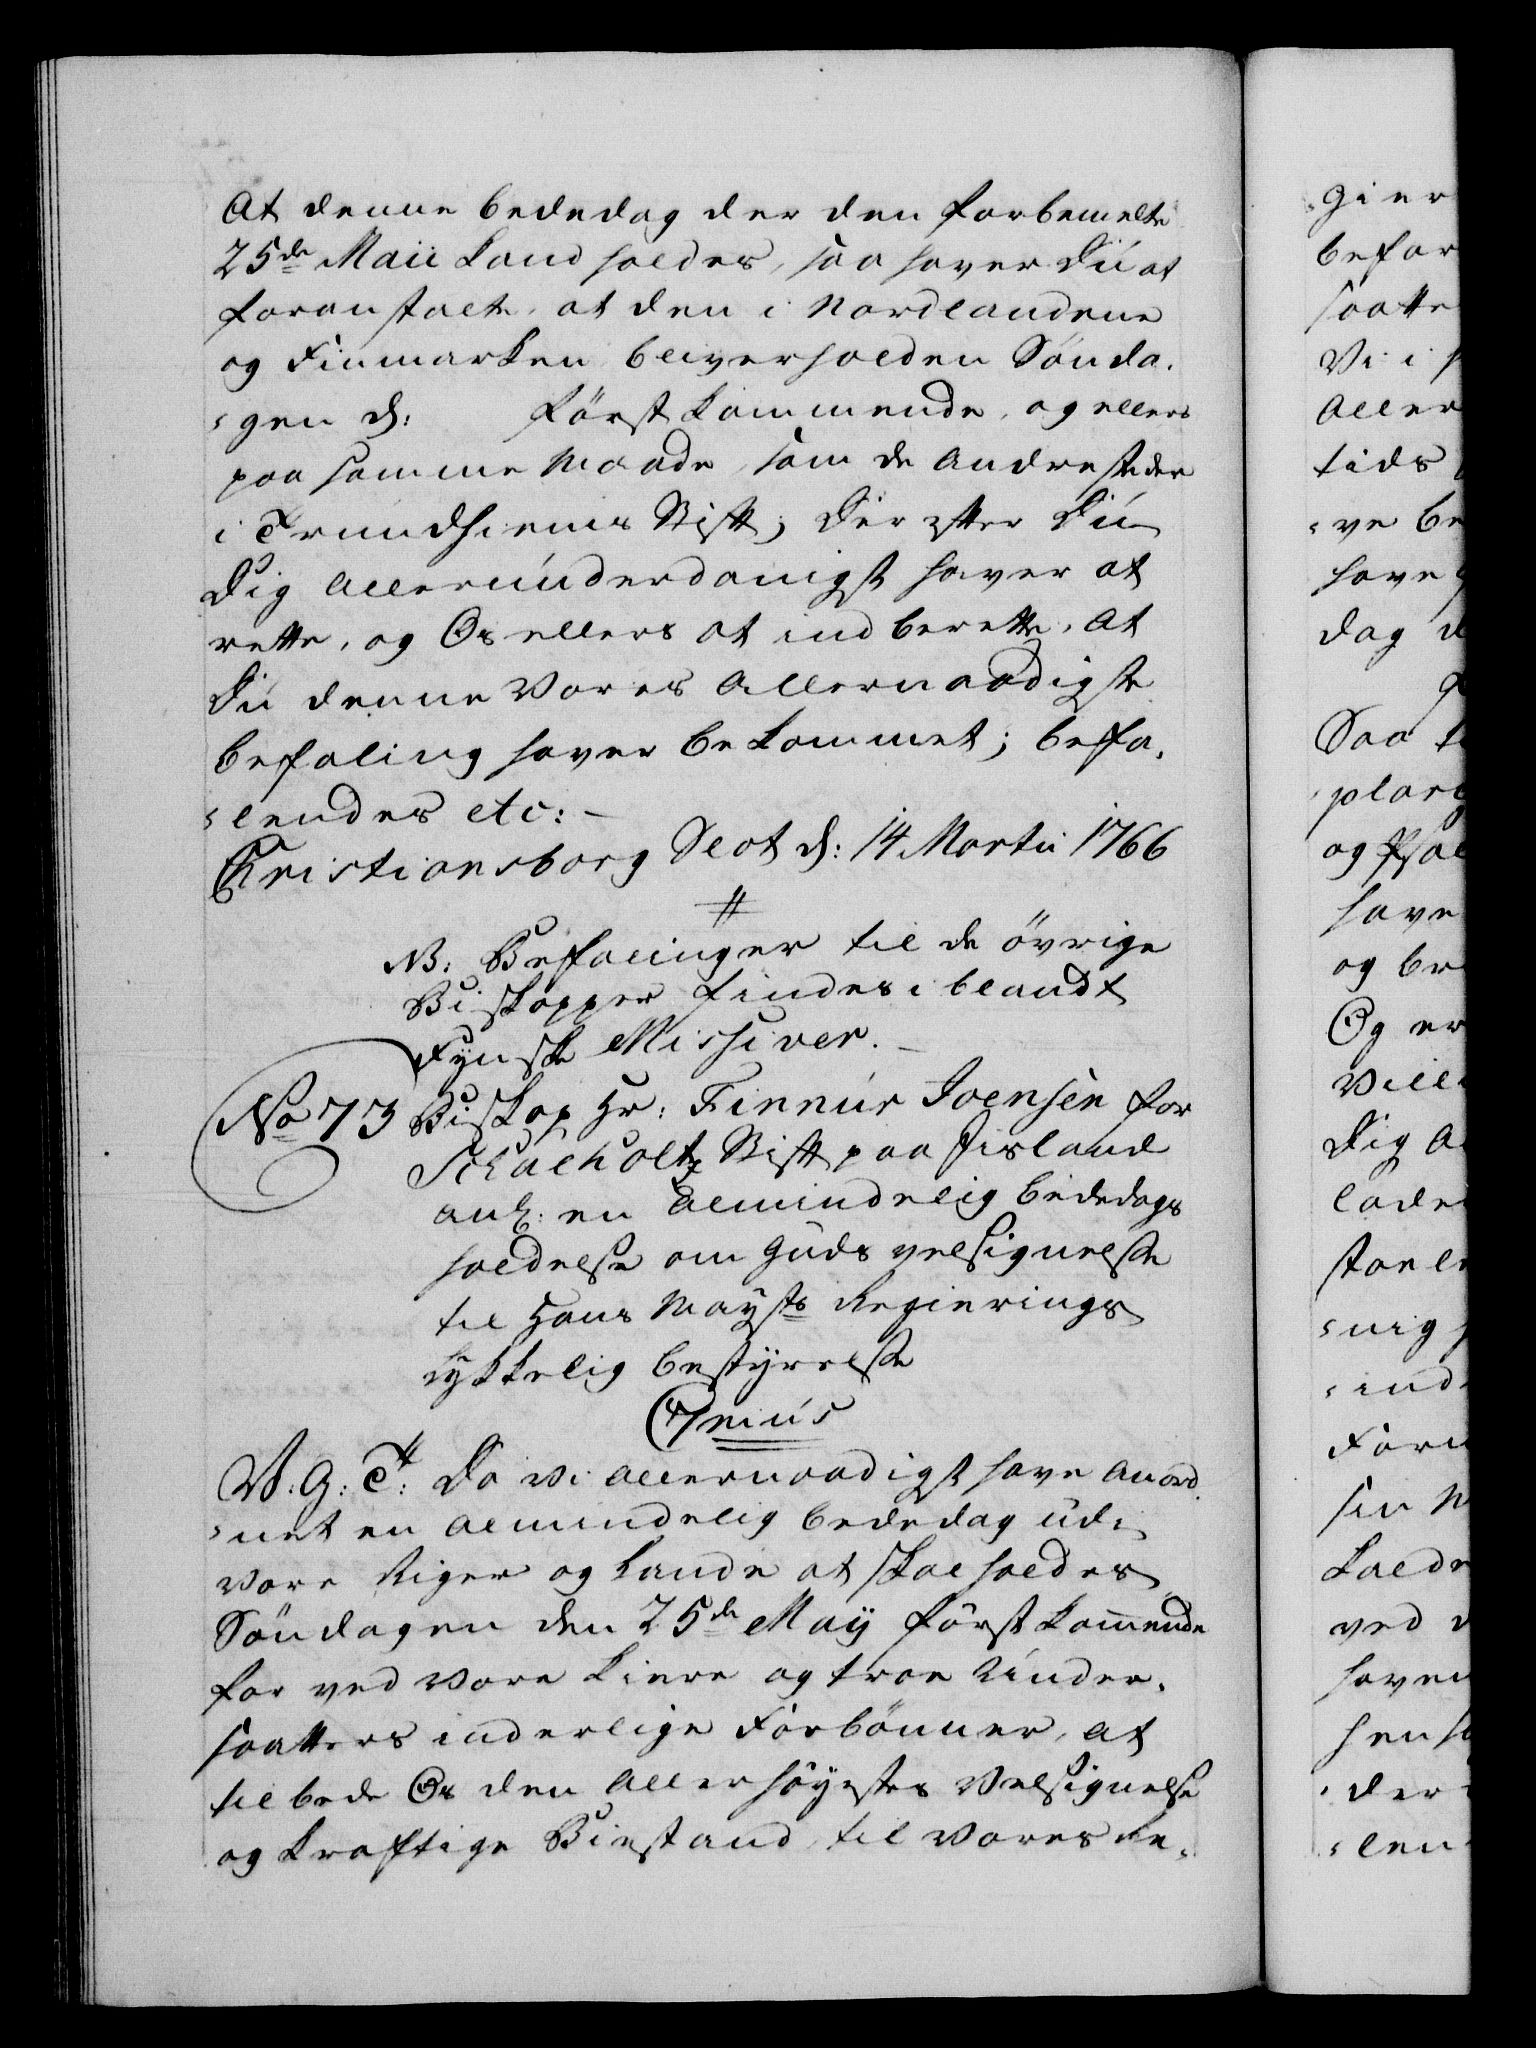 At denne bededag der den forbemelte
25de Maii kand holdes, saa haver Du at
foranstalte, at den i Nordlandene
og Finmarken bliver holden Sønda¬
gen d: førstkommende, og ellers
paa samme Maade, som de andre steder
i Trundhiems Stift; Der efter Du
Dig allerunderdanigst haver at
rette, og Os ellers at indberette, At
Du denne Vores Allernaadigste
befaling haver bekommet; befa¬
lendes etc: –
Christiansborg Slot d: 14 Martii 1766
NB: Befalinger til de øvrige
Biskopper findes iblandt
Fynske Missiver. –
No 73 Biskop Hr: Finnur Joensen for
Schalholtz Stift paa Iisland
anl: en Almindelig bededags
holdelse om Guds velsignelse
til Hans Mayts Regierings
lykkelig bestyrelse
Genius
V: G: T: Da Vi allernaadigst have Anord¬
net en almindelig bededag udi
vore Riger og Lande at skal holdes
Søndagen den 25de May førstkommende
for ved vore kiere og troe Under¬
saatters inderlige Forbønner, at
tilbede Os den Allerhøyestes Velsignelse
og kraftige Biestand til vores Re¬
gier
befar
saatte
Vi i
Aller
tids
ve be
have
dag
Saa
og
have
og be
Og er
vill
Dig A
lade
nig
ind
ved
haver
der
len